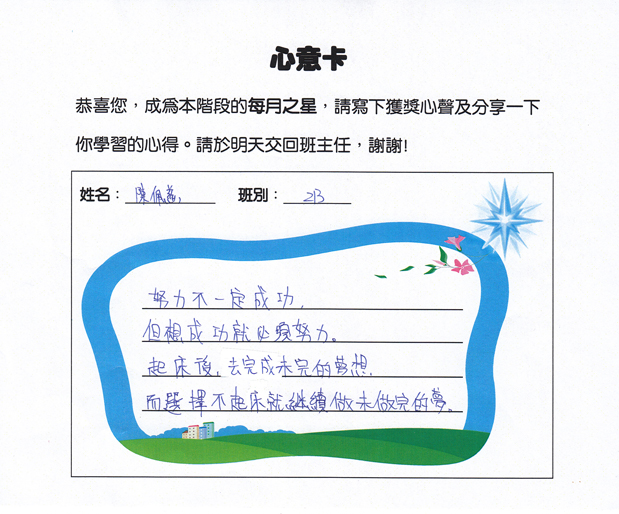 心意卡
恭喜您，成為本階段的每月之星，請寫下獲獎心聲及分享一下
你學習的心得。請於明天交回班主任，謝謝!
姓名： 陳佩 班別： 2B
努力不一定成功，
但想成功就必須努力。
起床後，去完成未完的夢想，
而選擇不起床就繼續做未做完的夢。